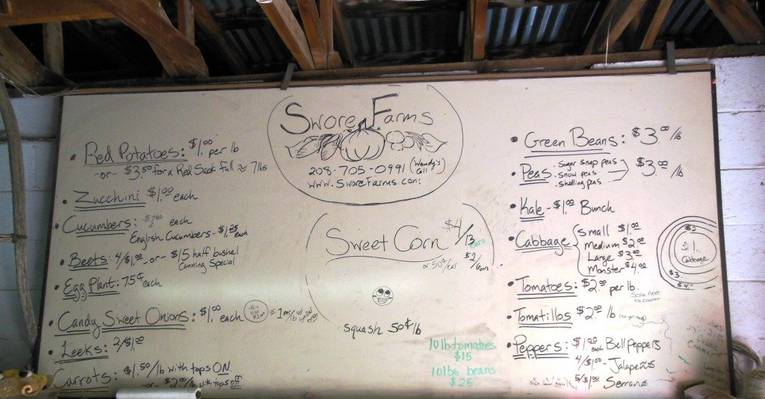 Swore Farms
208-705-0991 (Wendy's Cell)
www.SworeFarms.com
• Red Potatoes: $1.00 per lb
-or- $3.50 for a Red Sack Full ≈ 7 lbs
• Zucchini $1.00 each
• Cucumbers: each
English Cucumbers - each
• Beets: 4/$1.00 -or- $15 half bushel
Canning Special
• Egg Plant: 75¢ each
• Candy Sweet Onions: $1.00 each
• Leeks: 2/$1.00
Carrots: $1.50/lb with tops ON
-or- with tops off
Sweet Corn $4/13 ears
or 50¢/ear
squash 50¢ lb
10 lb tomatoes
$15
10 lbs beans
$25
• Green Beans: $3.00/lb
• Peas • Sugar snap peas
• Snow peas
• Shelling peas
$3.00/lb
• Kale - $1.00 Bunch
• Cabbage small $1.00
Medium $2.00
Large $3.00
Monster $4.00
$2
$1
Cabbage
$3
$4
• Tomatoes: $2.00 per lb.
• Tomatillos $2.00 lb
• Peppers: $1.00 each Bell Peppers
4/$1.00 - Jalapeños
5/$1.00 Serranos